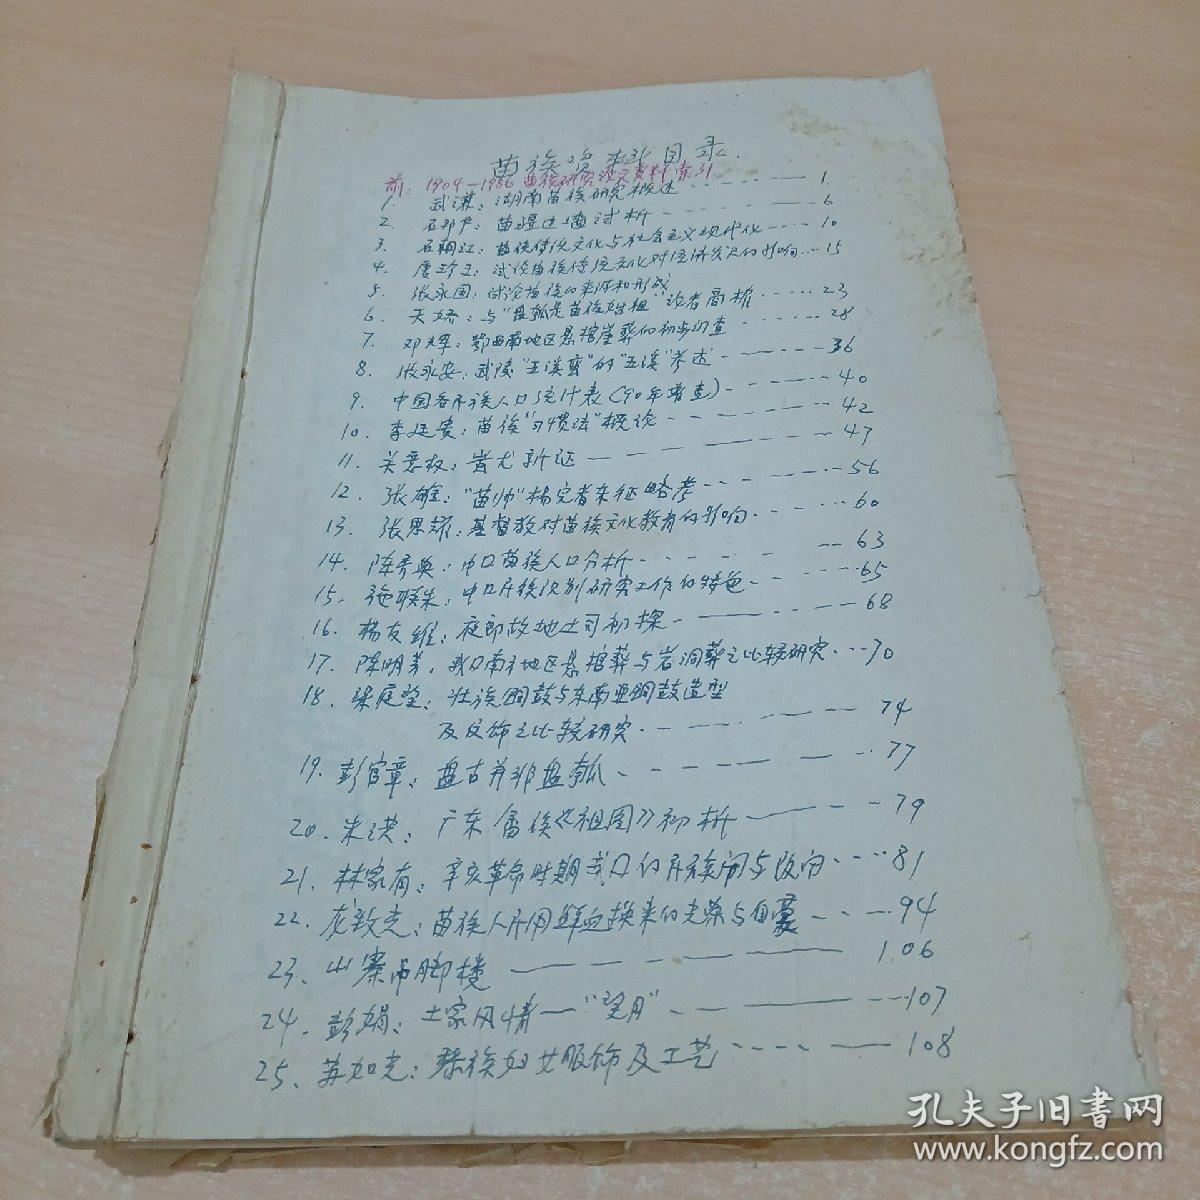 苗族资料目录
前：1904—1986苗族研究论文资料索引
1. 武谋：湖南苗族研究概述 1
2. 石邦彦：苗疆边墙试析 6
3. 石朝江：苗族传统文化与社会主义现代化 10
4. 唐珍玉：试论苗族传统文化对经济发展的影响 15
5. 张永国：试论苗族的来源和形成
6. 天娇：与"盘瓠是苗族始祖"论者商榷 23
7. 邓辉：鄂西南地区悬棺崖葬的初步调查 28
8. 张永安：武陵"五溪蛮"的"五溪"考述 36
9. 中国各民族人口统计表（90年普查） 40
10. 李廷贵：苗族"习惯法"概论 42
11. 关意权：蚩尤新证 47
12. 张雄："苗帅"杨完者东征略考 56
13. 张思耀：基督教对苗族文化教育的影响 60
14. 陈秀英：中国苗族人口分析 63
15. 施联朱：中国民族识别研究工作的特色 65
16. 杨友维：夜郎故地土司初探 68
17. 陈明芳：我国南方地区悬棺葬与岩洞葬之比较研究 70
18. 梁庭望：壮族铜鼓与东南亚铜鼓造型
及纹饰之比较研究 74
19. 彭官章：盘古并非盘瓠 77
20. 朱洪：广东畲族《祖图》初析 79
21. 林家有：辛亥革命时期我国的民族问题 81
22. 龙致光：苗族人民用鲜血换来的光荣与自豪 94
23. 山寨吊脚楼 106
24. 彭娟：土家风情—"望月" 107
25. 苏如光：族妇女服饰及工艺 108
孔夫子旧书网
www.kongfz.com